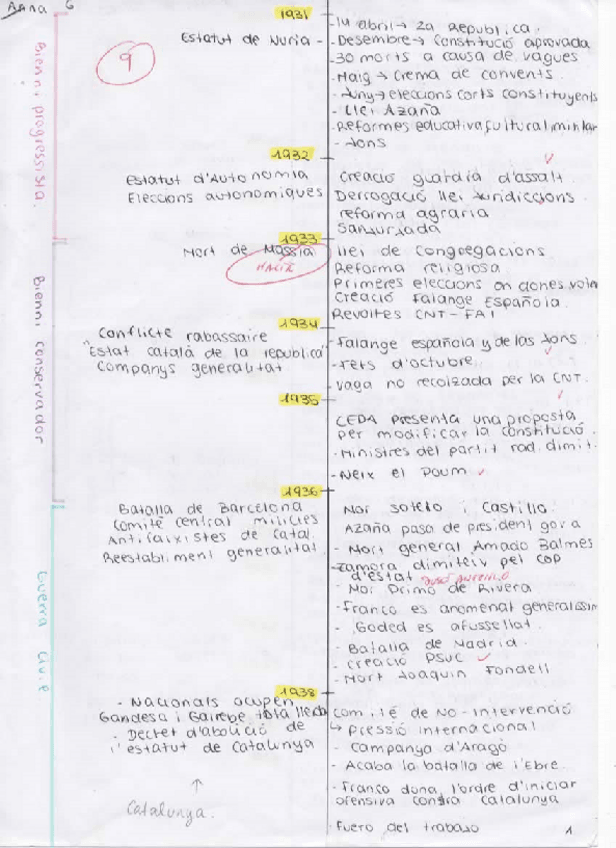 Anna G
9
Bienni progressista.
Bienni conservador
Guerra Civil
1931
Estatut de Nuria -
- 14 abril → 2a Republica.
- Desembre → Constitució aprovada
- 30 morts a causa de vagues
- Maig → crema de convents.
- Juny → eleccions corts constituyents
- Llei Azaña
- Reformes educativa, cultural, militar
- Jons
1932
Estatut d'Autonomia
Eleccions autonomiques
Creació guardia d'assalt.
Derrogació llei Juridiccions
reforma agraria
Sanjurjada
1933
Mort de Massia
MACIÀ
llei de Congregacions.
Reforma religiosa
Primeres eleccions on dones voten
Creació Falange Española.
Revoltes CNT-FAI
1934
Conflicte rabassaire
"Estat català de la republica"
Companys generalitat
Falange española y de las Jons.
- Fets d'octubre
vaga no recolzada per la CNT.
1935
CEDA presenta una proposta
per modificar la constitució.
- Ministres del partit rad. dimit.
- Neix el Poum
1936
Batalla de Barcelona
Comité central milicies
Antifaixistes de Catal.
Reestabliment generalitat
Mor Sotelo i Castillo.
Azaña pasa de president gov a
- Mort general Amado Balmes
- Zamora dimiteix pel cop
d'estat
JOSÉ ANTONIO
- Mor Primo de Rivera
- Franco es anomenat generalissim
- Goded es afussellat.
- Batalla de Madrid.
- Creació PSUC
- Mort Joaquin Fondell
1938
- Nacionals ocupen
Gandesa i Gairebé tota lleida
- Decret d'abolició de
l'estatut de Catalunya
↑
Catalunya.
Comité de No-Intervenció
↳ Pressió internacional
- Campanya d'Aragó
- Acaba la batalla de l'Ebre.
- Franco dona l'ordre d'iniciar
ofensiva contra Catalunya
- Fuero del trabajo
1